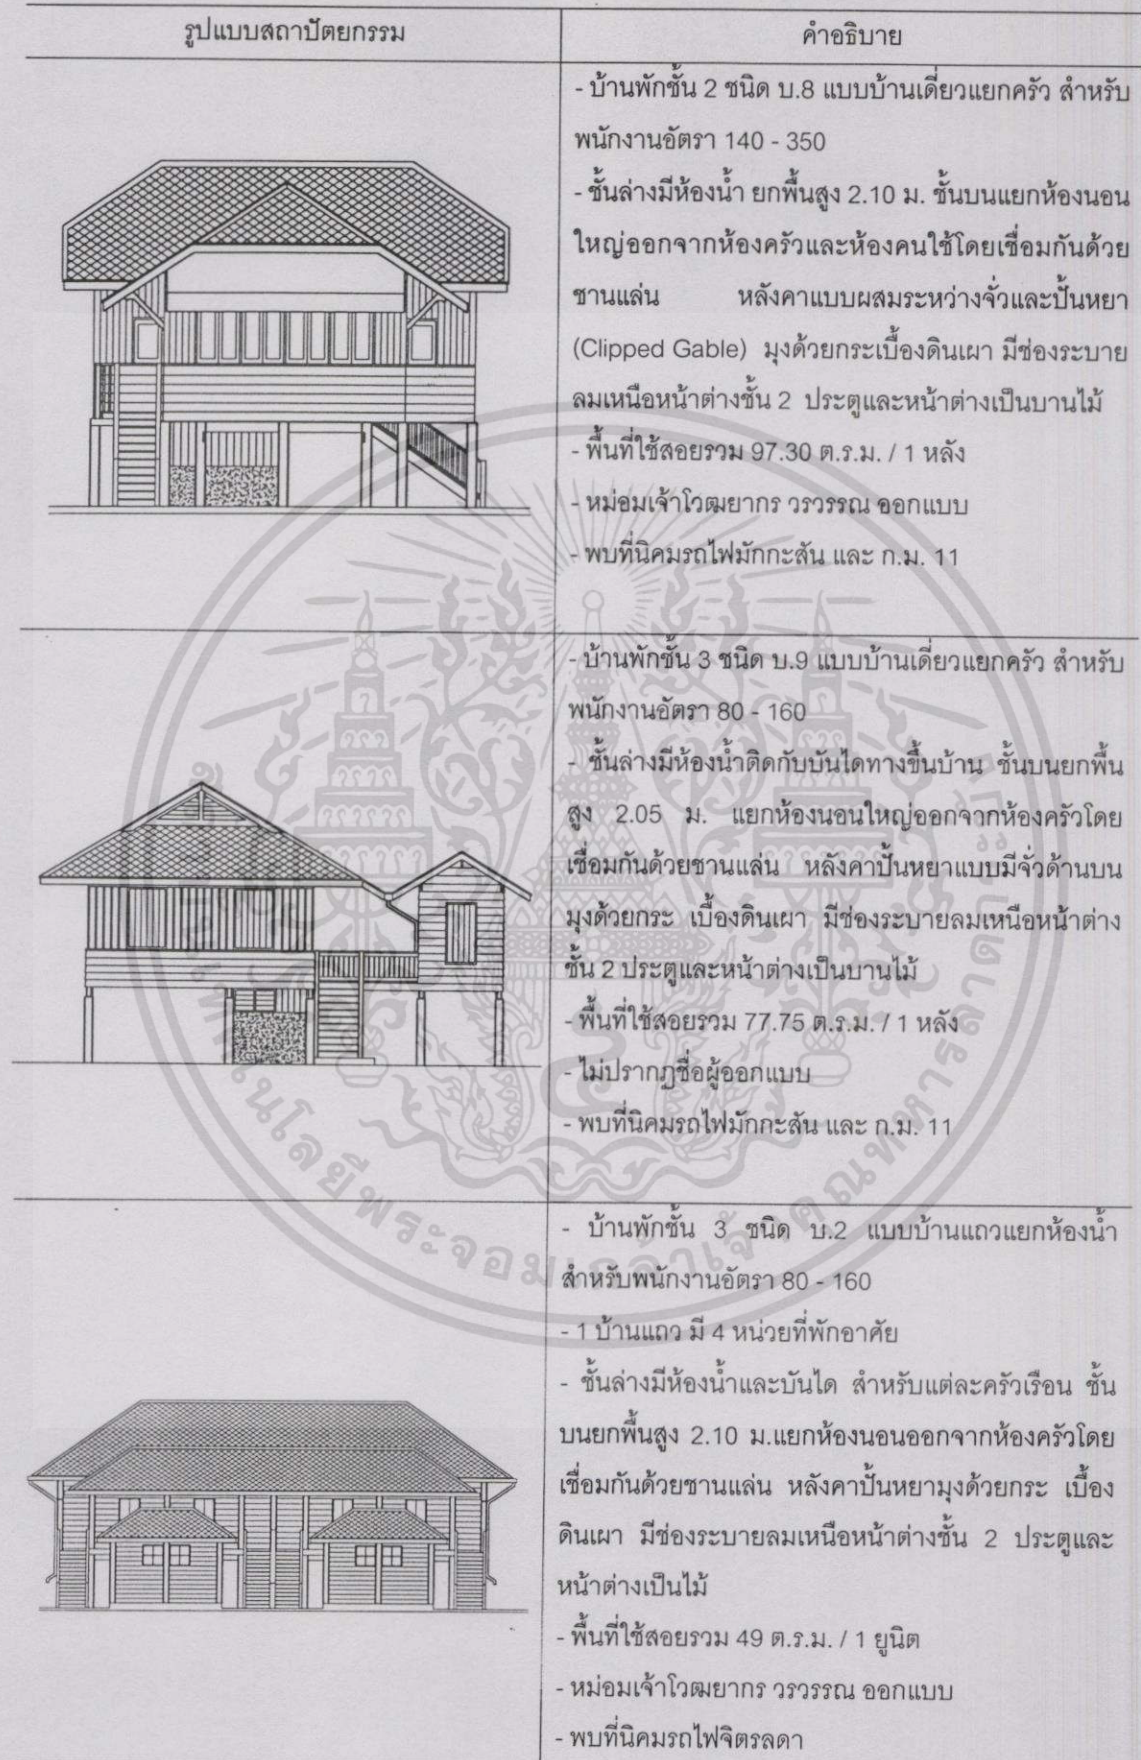 รูปแบบสถาปัตยกรรม
คำอธิบาย
- บ้านพักชั้น 2 ชนิด บ.8 แบบบ้านเดี่ยวแยกครัว สำหรับ
พนักงานอัตรา 140 - 350
- ชั้นล่างมีห้องน้ำ ยกพื้นสูง 2.10 ม. ชั้นบนแยกห้องนอน
ใหญ่ออกจากห้องครัวและห้องคนใช้โดยเชื่อมกันด้วย
ชานแล่น หลังคาแบบผสมระหว่างจั่วและปั้นหยา
(Clipped Gable) มุงด้วยกระเบื้องดินเผา มีช่องระบาย
ลมเหนือหน้าต่างชั้น 2 ประตูและหน้าต่างเป็นบานไม้
- พื้นที่ใช้สอยรวม 97.30 ต.ร.ม. / 1 หลัง
- หม่อมเจ้าโวฒยากร วรวรรณ ออกแบบ
- พบที่นิคมรถไฟมักกะสัน และ ก.ม. 11
- บ้านพักชั้น 3 ชนิด บ.9 แบบบ้านเดี่ยวแยกครัว สำหรับ
พนักงานอัตรา 80 - 160
- ชั้นล่างมีห้องน้ำติดกับบันไดทางขึ้นบ้าน ชั้นบนยกพื้น
สูง 2.05 ม. แยกห้องนอนใหญ่ออกจากห้องครัวโดย
เชื่อมกันด้วยชานแล่น หลังคาปั้นหยาแบบมีจั่วด้านบน
มุงด้วยกระ เบื้องดินเผา มีช่องระบายลมเหนือหน้าต่าง
ชั้น 2 ประตูและหน้าต่างเป็นบานไม้
- พื้นที่ใช้สอยรวม 77.75 ต.ร.ม. / 1 หลัง
- ไม่ปรากฏชื่อผู้ออกแบบ
- พบที่นิคมรถไฟมักกะสัน และ ก.ม. 11
- บ้านพักชั้น 3 ชนิด บ.2 แบบบ้านแถวแยกห้องน้ำ
สำหรับพนักงานอัตรา 80 - 160
- 1 บ้านแถว มี 4 หน่วยที่พักอาศัย
- ชั้นล่างมีห้องน้ำและบันได สำหรับแต่ละครัวเรือน ชั้น
บนยกพื้นสูง 2.10 ม.แยกห้องนอนออกจากห้องครัวโดย
เชื่อมกันด้วยชานแล่น หลังคาปั้นหยามุงด้วยกระ เบื้อง
ดินเผา มีช่องระบายลมเหนือหน้าต่างชั้น 2 ประตูและ
หน้าต่างเป็นไม้
- พื้นที่ใช้สอยรวม 49 ต.ร.ม. / 1 ยูนิต
- หม่อมเจ้าโวฒยากร วรวรรณ ออกแบบ
- พบที่นิคมรถไฟจิตรลดา